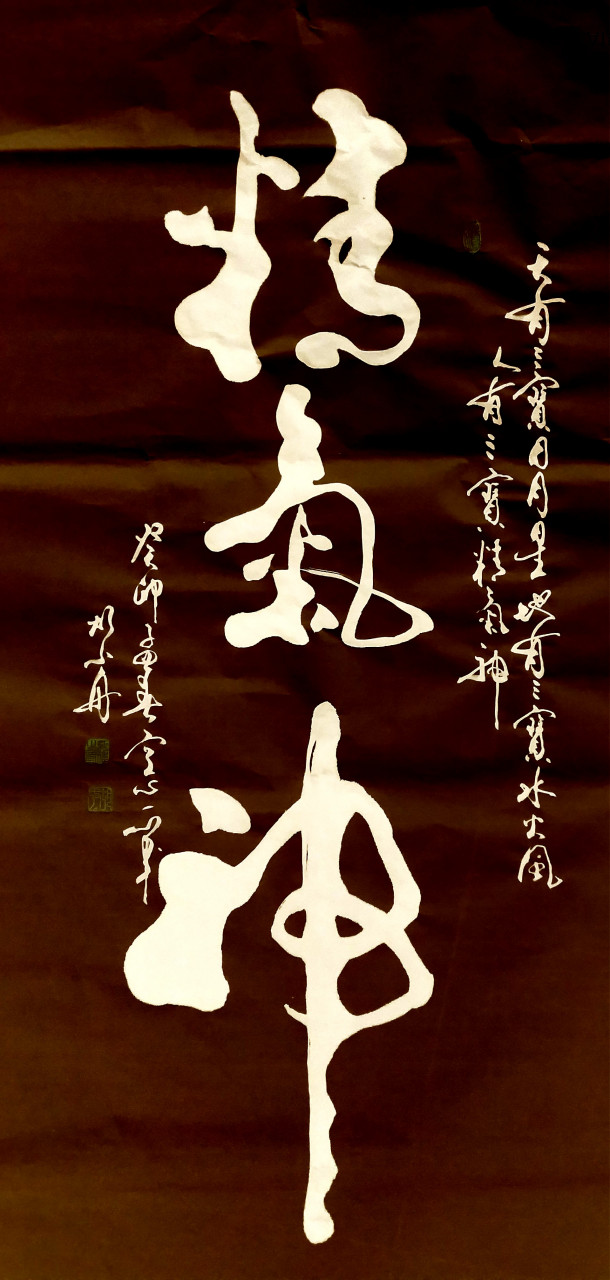 精氣神
天有三寶日月星地有三寶水火風
人有三寶精氣神
癸卯孟春